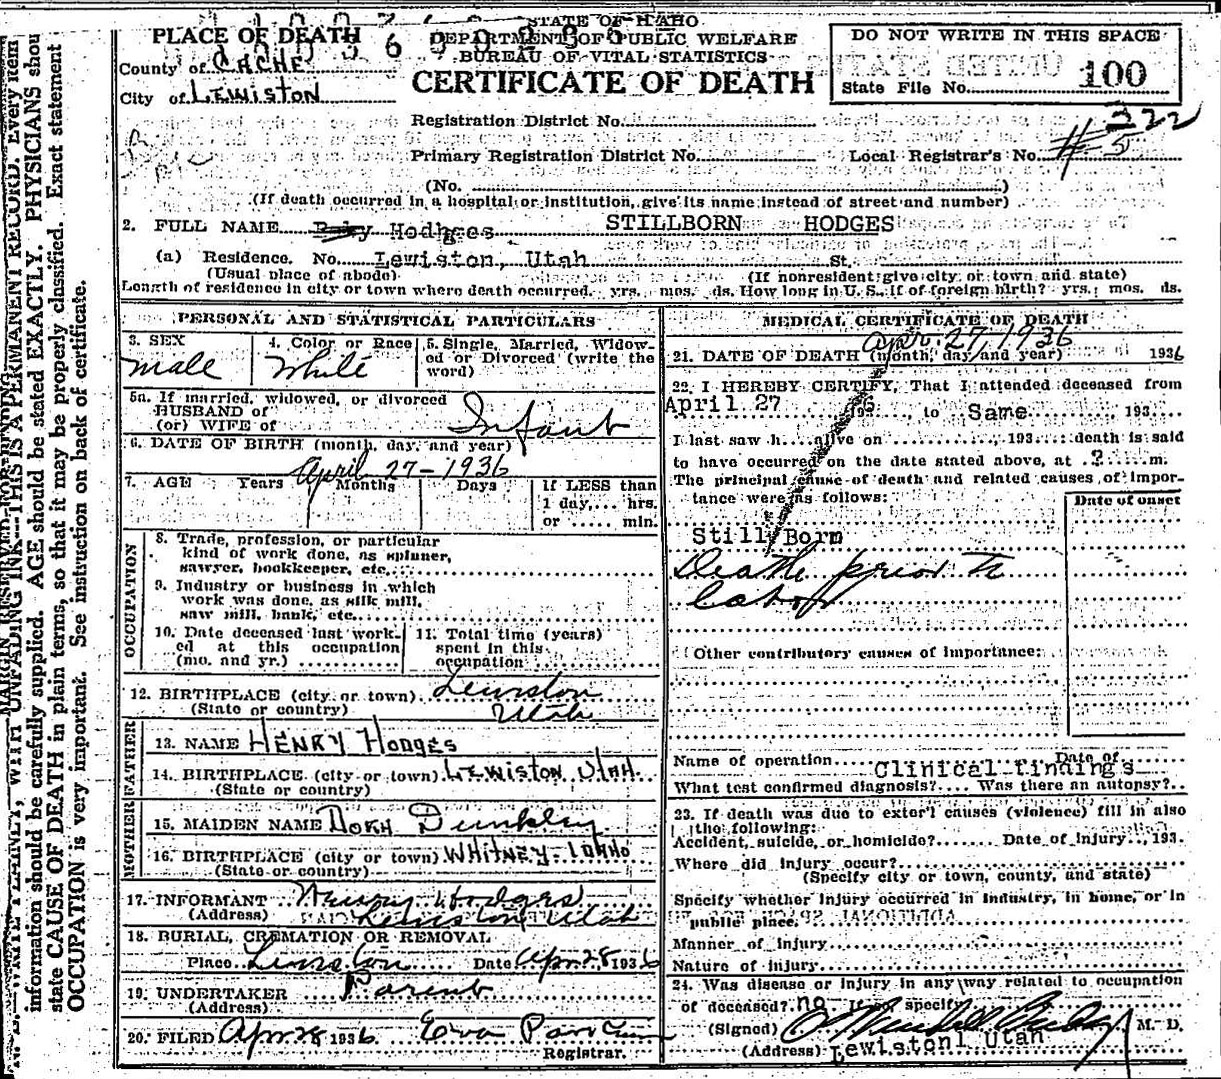 STATE OF IDAHO
PLACE OF DEATH
DEPARTMENT OF PUBLIC WELFARE
BUREAU OF VITAL STATISTICS
CERTIFICATE OF DEATH
DO NOT WRITE IN THIS SPACE
State File No. 100
County of CACHE
City of LEWISTON
Registration District No.
222
Primary Registration District No. Local Registrar's No. #5
(No. )
(If death occurred in a hospital or institution, give its name instead of street and number)
2. FULL NAME Hodhges STILLBORN HODGES
(a) Residence. No. Lewiston, Utah St.
(Usual place of abode) (If nonresident give city or town and state)
Length of residence in city or town where death occurred. yrs. mos. ds. How long in U. S., if of foreign birth? yrs. mos. ds.
PERSONAL AND STATISTICAL PARTICULARS
3. SEX
male
4. Color or Race
White
5. Single, Married, Widowed or Divorced (write the word)
5a. If married, widowed, or divorced
HUSBAND of
(or) WIFE of
Infant
6. DATE OF BIRTH (month, day, and year)
April 27-1936
7. AGE Years Months Days If LESS than
1 day,.... hrs.
or ..... min.
OCCUPATION
8. Trade, profession, or particular
kind of work done, as spinner,
sawyer, bookkeeper, etc.
9. Industry or business in which
work was done, as silk mill,
saw mill, bank, etc.
10. Date deceased last work-
ed at this occupation
(mo. and yr.)
11. Total time (years)
spent in this
occupation
12. BIRTHPLACE (city or town) Lewiston
(State or country) Utah
FATHER
13. NAME HENRY HODGES
14. BIRTHPLACE (city or town) LEWISTON UTAH
(State or country)
MOTHER
15. MAIDEN NAME DORA Dunkley
16. BIRTHPLACE (city or town) WHITNEY-IDAHO
(State or country)
17. INFORMANT Henry Hodges
(Address) Lewiston Utah
18. BURIAL, CREMATION OR REMOVAL
Place Lewiston Date Apr 28, 1936
19. UNDERTAKER Parent
(Address)
20. FILED Apr 28 1936 Eva
Registrar.
MEDICAL CERTIFICATE OF DEATH
Apr. 27, 1936
21. DATE OF DEATH (month, day and year) 1936
22. I HEREBY CERTIFY, That I attended deceased from
April 27 1936, to Same 193
I last saw h....alive on ............, 193....: death is said
to have occurred on the date stated above, at .?......m.
The principal cause of death and related causes of impor-
tance were as follows:
Date of onset
Still Born
Death prior to
labor
Other contributory causes of importance:
Name of operation Date of
Clinical findings
What test confirmed diagnosis?.... Was there an autopsy?..
23. If death was due to exter'l causes (violence) fill in also
the following:
Accident, suicide, or homicide?....... Date of injury.., 193.
Where did injury occur?
(Specify city or town, county, and state)
Specify whether injury occurred in industry, in home, or in
public place.
Manner of injury
Nature of injury
24. Was disease or injury in any way related to occupation
of deceased? no If so, specify
(Signed) M. D.
(Address) Lewiston1 Utah
MARGIN RESERVED FOR BINDING
WRITE PLAINLY, WITH UNFADING INK—THIS IS A PERMANENT RECORD. Every item
information should be carefully supplied. AGE should be stated EXACTLY. PHYSICIANS shou
state CAUSE OF DEATH in plain terms, so that it may be properly classified. Exact statement
OCCUPATION is very important. See instruction on back of certificate.